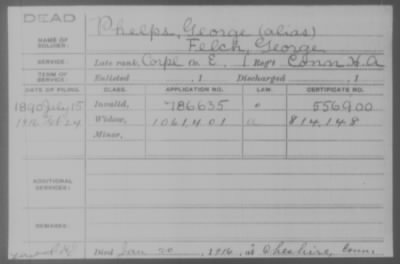 DEAD
NAME OF SOLDIER: Phelps, George (alias)
Felch, George
SERVICE: Late rank, Corpl Co. E, 1 Reg't Conn H.A
TERM OF SERVICE: Enlisted , 1 Discharged , 1
DATE OF FILING. CLASS. APPLICATION NO. LAW. CERTIFICATE NO.
1890 July 15 Invalid, 786635 556900
1916 24 Widow, 1061,401 a 814,148
Minor,
ADDITIONAL SERVICES:
REMARKS:
Died Jan 20, 1916, at Cheshire, Conn.